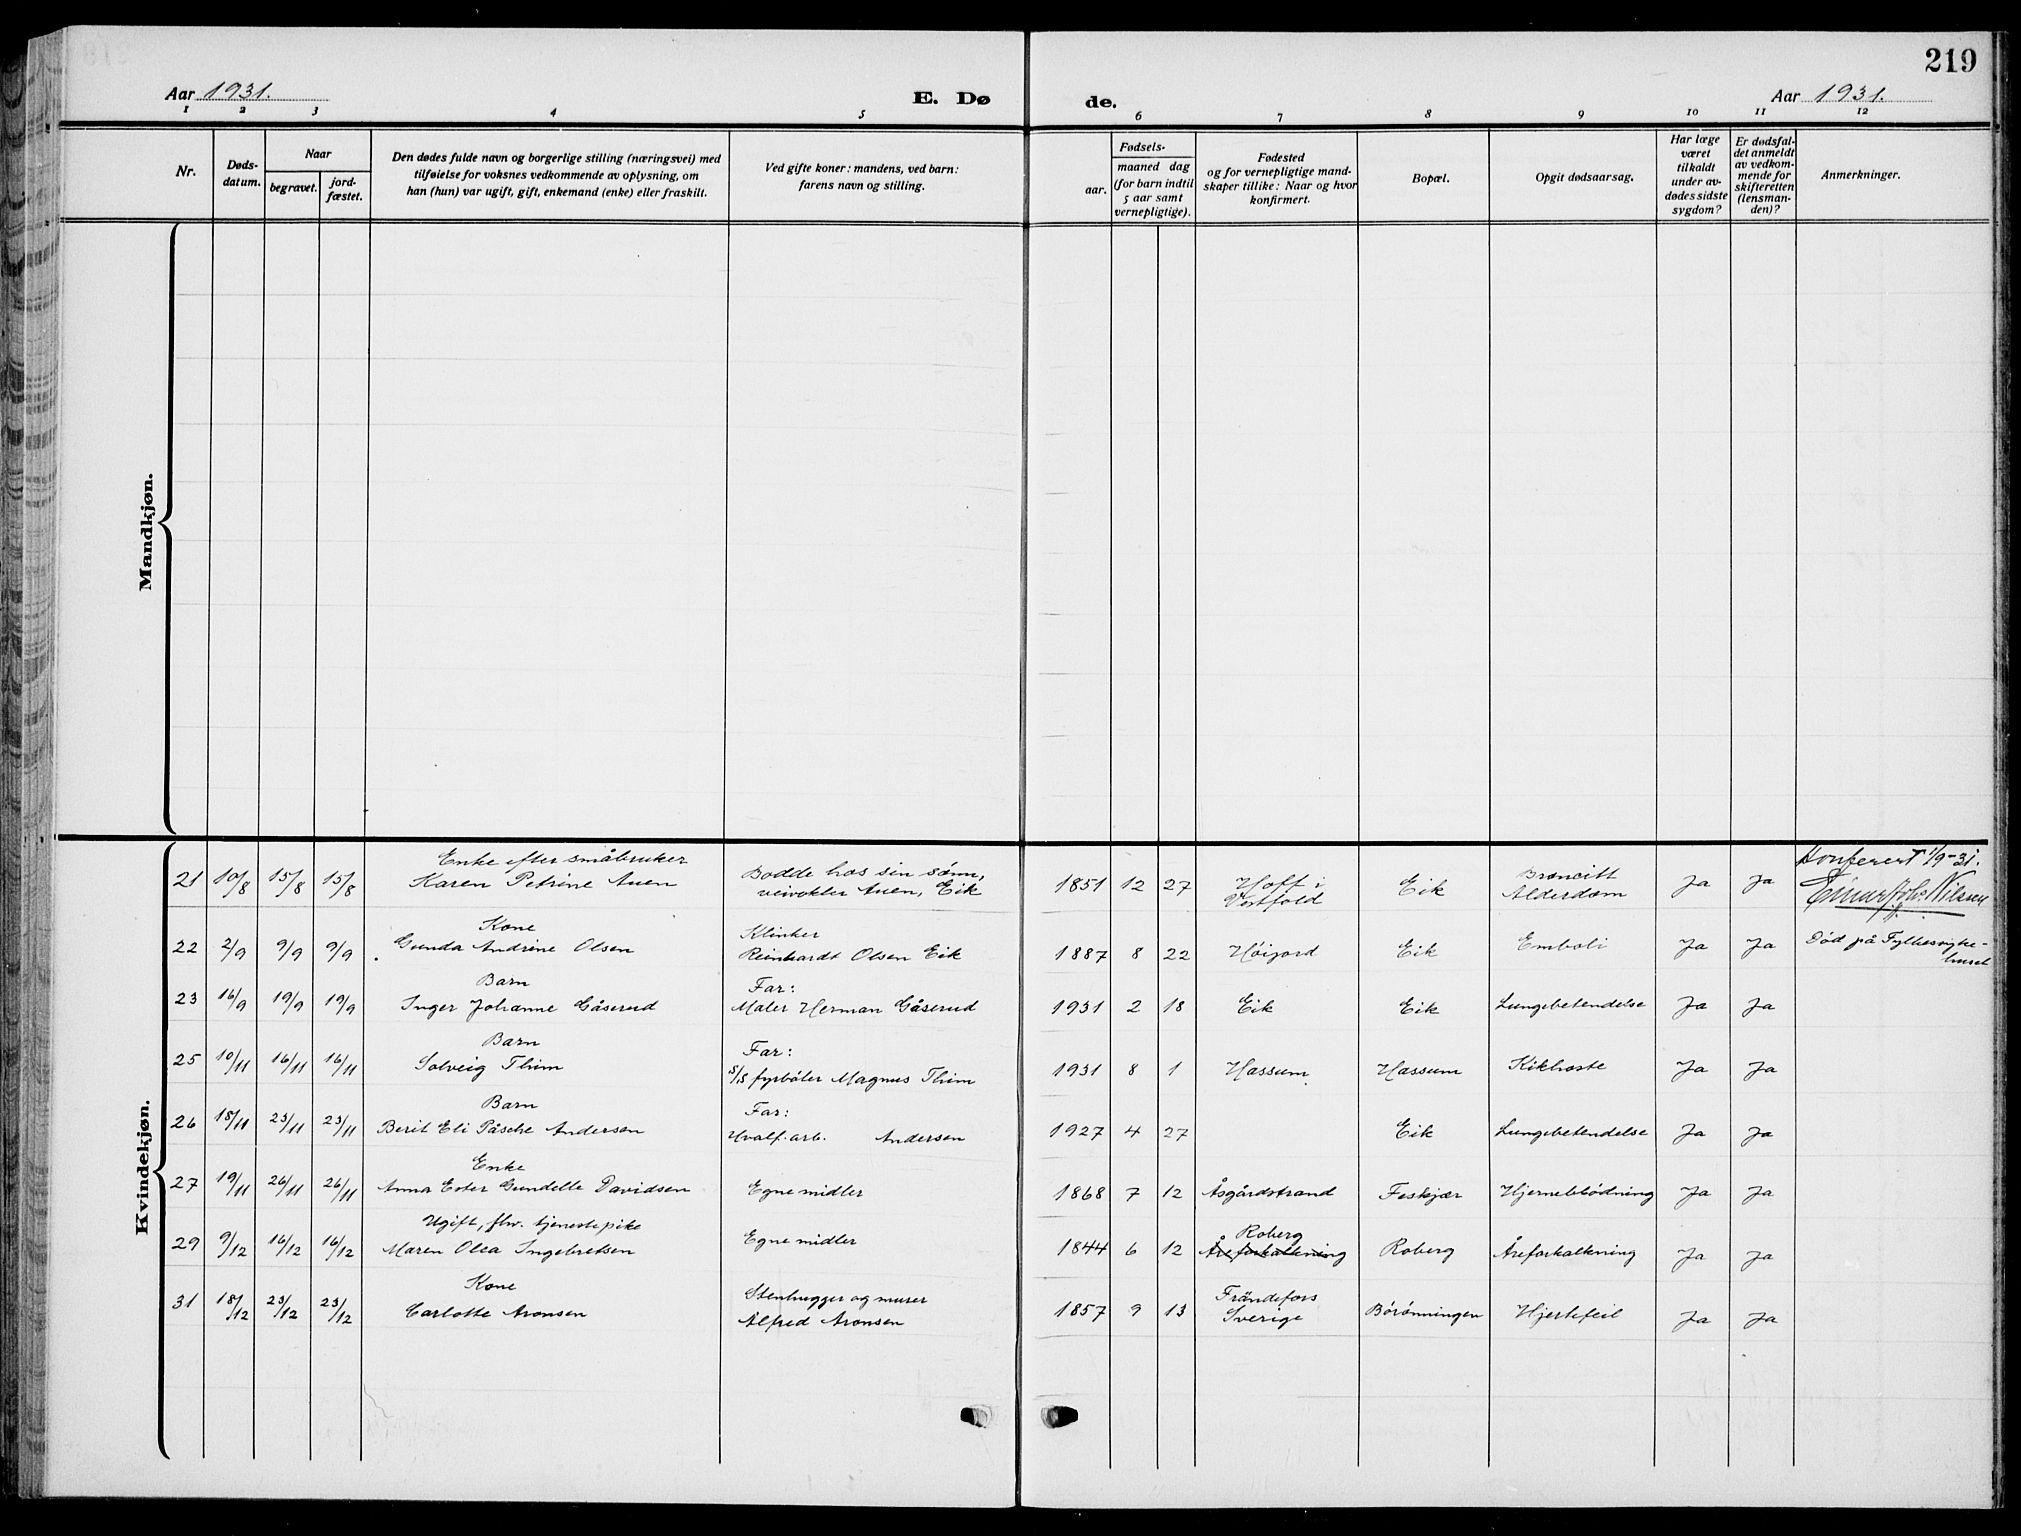 219
Aar 1931.
E. Dø
de.
Aar 1931.
1 2 3 4 5 6 7 8 9 10 11 12
Nr.
Døds-
datum.
Naar
begravet.
jord-
fæstet.
Den dødes fulde navn og borgerlige stilling (næringsvei) med
tilføielse for voksnes vedkommende av oplysning, om
han (hun) var ugift, gift, enkemand (enke) eller fraskilt.
Ved gifte koner: mandens, ved barn:
farens navn og stilling.
Fødsels-
aar.
maaned dag
(for barn indtil
5 aar samt
vernepligtige).
Fødested
og for vernepligtige mand-
skaper tillike: Naar og hvor
konfirmert.
Bopæl.
Opgit dødsaarsag.
Har læge
været
tilkaldt
under av-
dødes sidste
sygdom?
Er dødsfal-
det anmeldt
av vedkom-
mende for
skifteretten
(lensman-
den)?
Anmerkninger.
Mandkjøn.
Kvindekjøn.
Enke efter småbruker
21 10/8 15/8 15/8 Karen Petrine Auen
Bodde hos sin sönn,
veivokter Auen, Eik
1851 12 27 Hoff i
Vestfold
Eik
Broncitt
Alderdom
Ja Ja
Konferert 1/9-31.
Nilssen
Kone
22 2/9 9/9 9/9 Gunda Andrine Olsen
Klinker
Reinhardt Olsen Eik
1887 8 22 Höijord Eik Emboli Ja Ja
Död på Fylkessyke-
huset
Barn
23 16/9 19/9 19/9 Inger Johanne Gåserud
Far:
Maler Herman Gåserud
1931 2 18 Eik Eik Lungebetendelse Ja Ja
Barn
25 10/11 16/11 16/11 Solveig Thim
Far:
S/S fyrböter Magnus Thim
1931 8 1 Hassum Hassum Kikhoste Ja Ja
Barn
26 18/11 23/11 23/11 Berit Eli Påsche Andersen
Far:
Hvalf. arb. Andersen
1927 4 27 Eik Lungebetendelse Ja Ja
Enke
27 19/11 26/11 26/11 Anna Ester Gundelle Davidsen
Egne midler
1868 7 12 Åsgårdstrand Feskjær Hjerneblödning Ja Ja
Ugift, fhv. tjenestepike
29 9/12 16/12 16/12 Maren Olea Ingebretsen
Egne midler
1844 6 12 Roberg
Åreforkalkning
Roberg Åreforkalkning Ja Ja
Kone
31 18/12 23/12 23/12 Carlotte Aronsen
Stenhugger og murer
Alfred Aronsen
1857 9 13 Frändefors
Sverige
Börönningen Hjertefeil Ja Ja